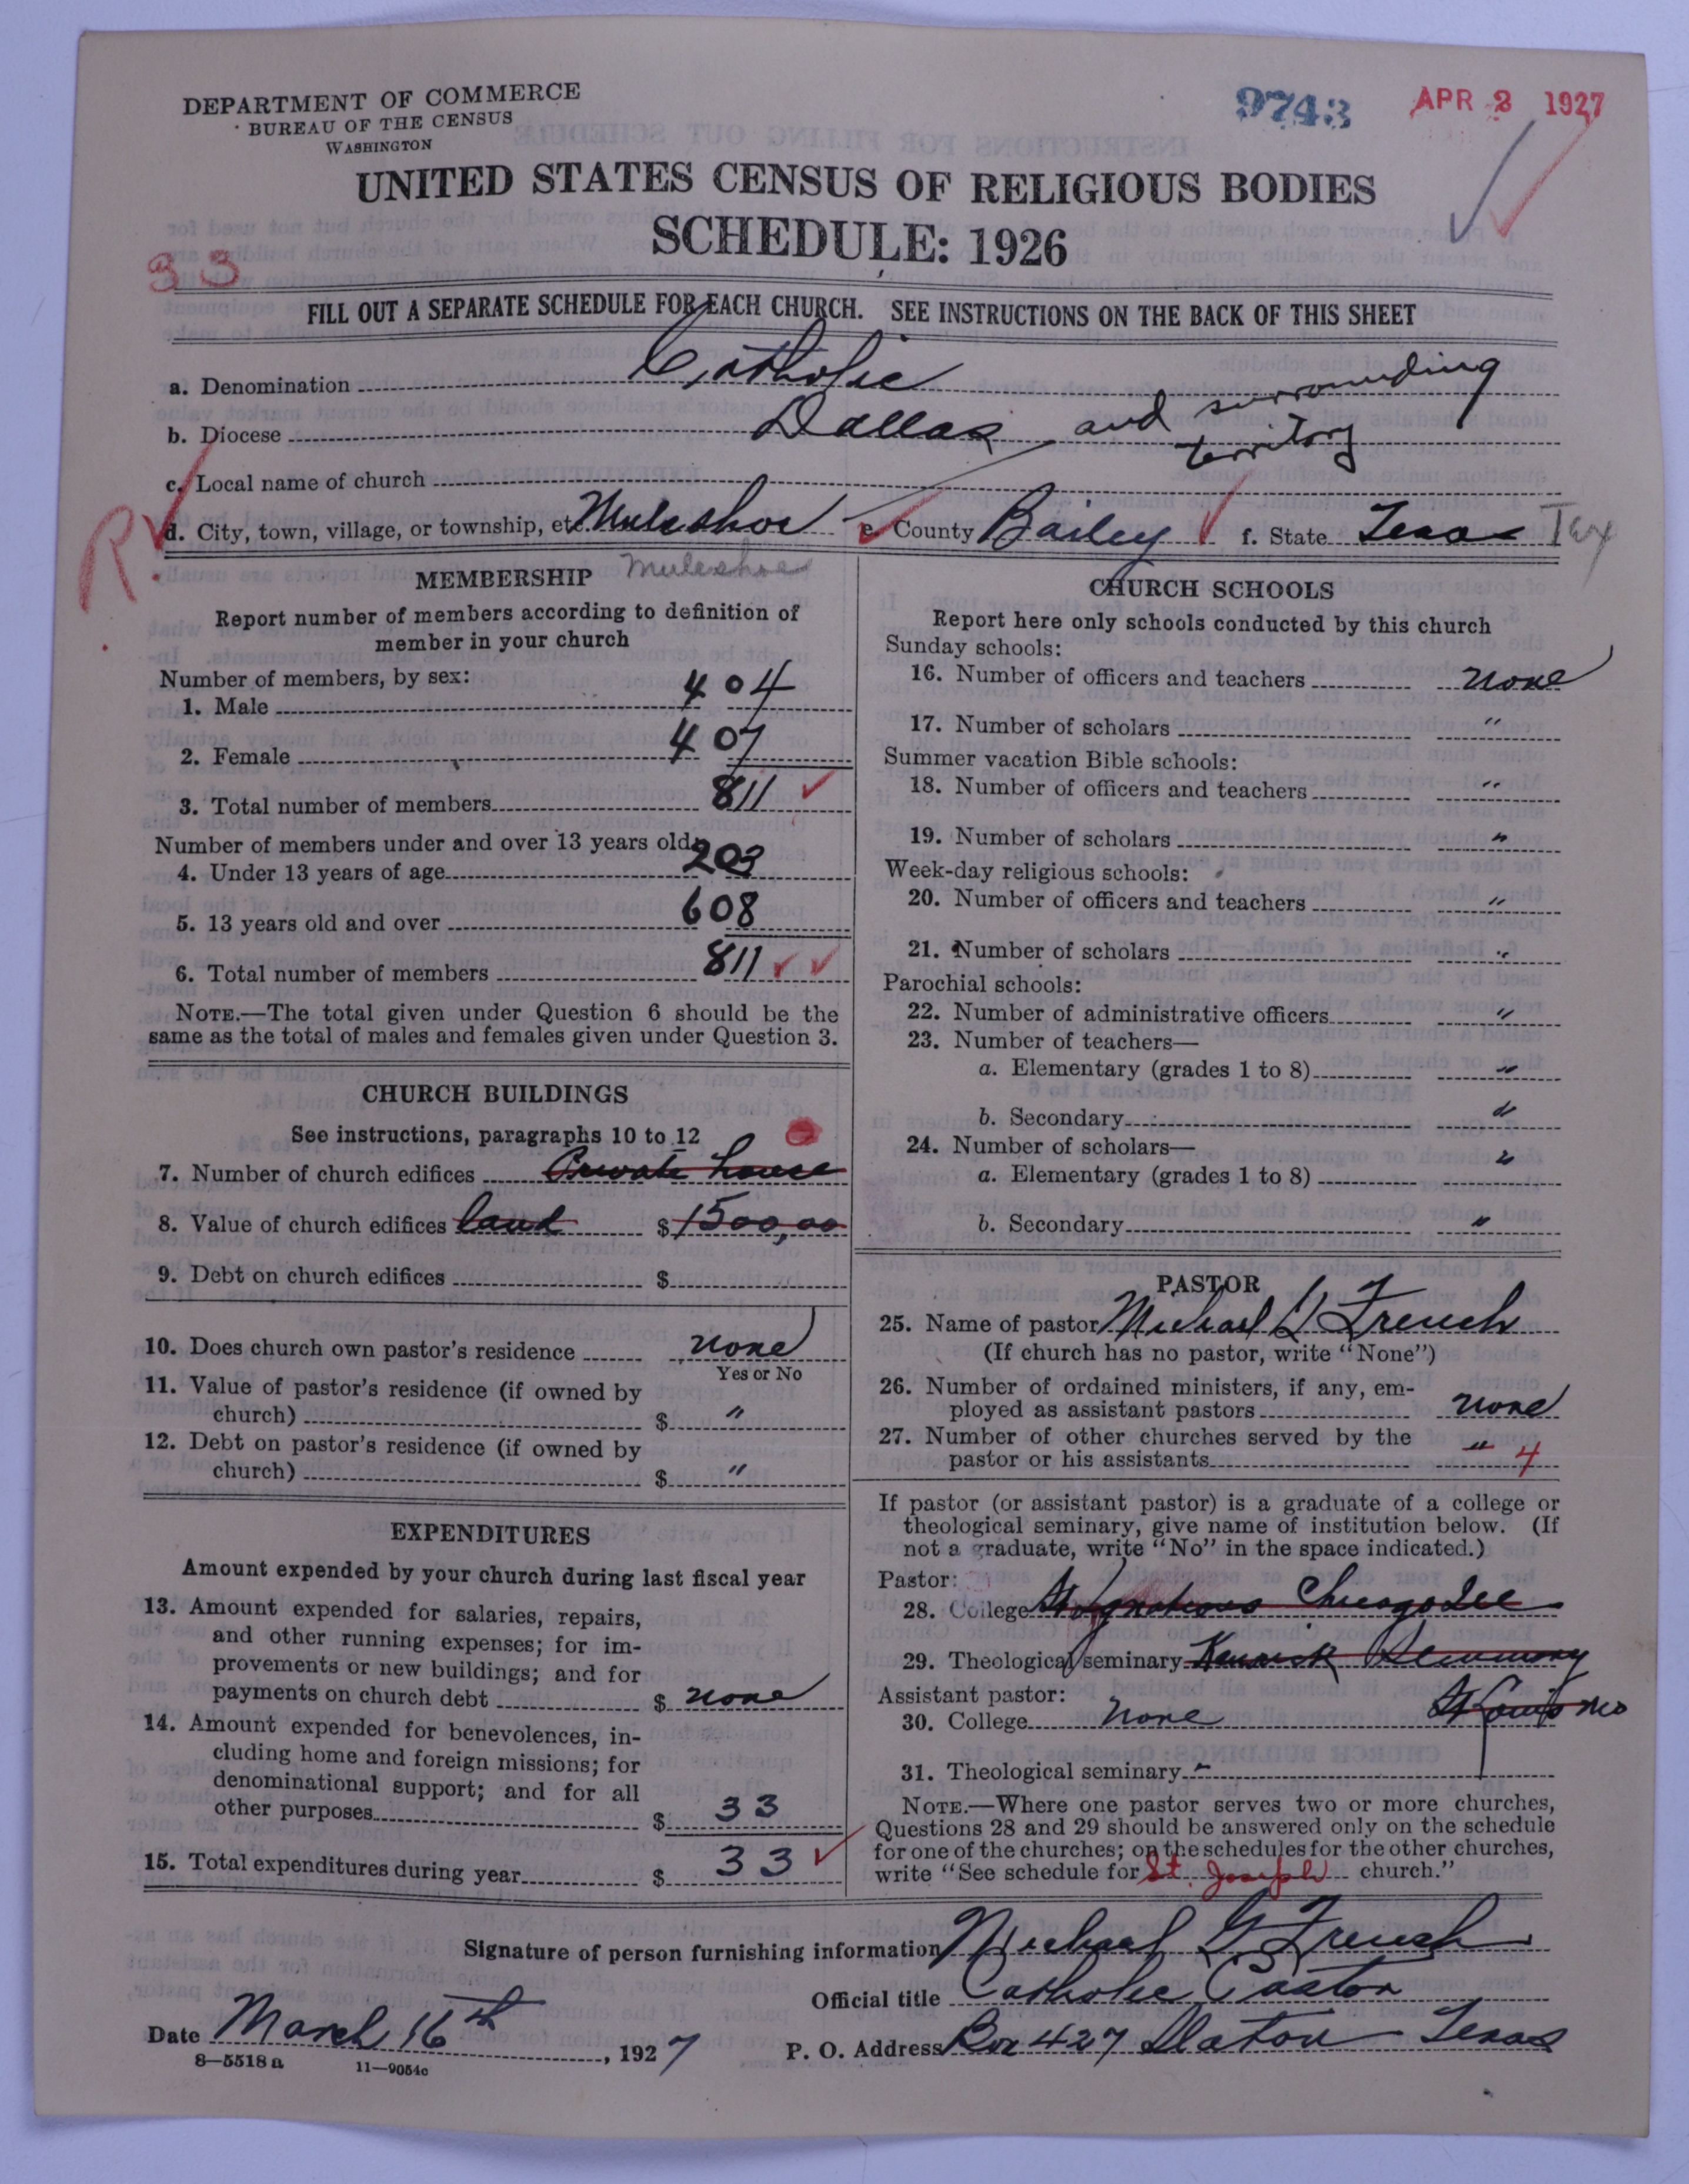 DEPARTMENT OF COMMERCE
BUREAU OF THE CENSUS
WASHINGTON
9743
APR 2 1927
UNITED STATES CENSUS OF RELIGIOUS BODIES
SCHEDULE: 1926
33
FILL OUT A SEPARATE SCHEDULE FOR EACH CHURCH. SEE INSTRUCTIONS ON THE BACK OF THIS SHEET
a. Denomination Catholic
b. Diocese Dallas and surrounding
territory
c. Local name of church
R
d. City, town, village, or township, etc. Muleshoe e. County Bailey f. State Texas Tex
MEMBERSHIP Muleshoe
Report number of members according to definition of
member in your church
Number of members, by sex:
1. Male 404
2. Female 407
3. Total number of members 811
Number of members under and over 13 years old:
4. Under 13 years of age 203
5. 13 years old and over 608
6. Total number of members 811
NOTE.—The total given under Question 6 should be the
same as the total of males and females given under Question 3.
CHURCH BUILDINGS
See instructions, paragraphs 10 to 12
7. Number of church edifices Private house
8. Value of church edifices land $ 1500,00
9. Debt on church edifices $
10. Does church own pastor's residence none
Yes or No
11. Value of pastor's residence (if owned by
church) $ "
12. Debt on pastor's residence (if owned by
church) $ "
EXPENDITURES
Amount expended by your church during last fiscal year
13. Amount expended for salaries, repairs,
and other running expenses; for im-
provements or new buildings; and for
payments on church debt $ none
14. Amount expended for benevolences, in-
cluding home and foreign missions; for
denominational support; and for all
other purposes $ 33
15. Total expenditures during year $ 33
CHURCH SCHOOLS
Report here only schools conducted by this church
Sunday schools:
16. Number of officers and teachers none
17. Number of scholars "
Summer vacation Bible schools:
18. Number of officers and teachers "
19. Number of scholars "
Week-day religious schools:
20. Number of officers and teachers "
21. Number of scholars "
Parochial schools:
22. Number of administrative officers "
23. Number of teachers—
a. Elementary (grades 1 to 8) "
b. Secondary "
24. Number of scholars—
a. Elementary (grades 1 to 8) "
b. Secondary "
PASTOR
25. Name of pastor Michael G French
(If church has no pastor, write "None")
26. Number of ordained ministers, if any, em-
ployed as assistant pastors none
27. Number of other churches served by the
pastor or his assistants " 4
If pastor (or assistant pastor) is a graduate of a college or
theological seminary, give name of institution below. (If
not a graduate, write "No" in the space indicated.)
Pastor:
28. College St Ignatious Chicago Ill
29. Theological seminary Kenrick Seminary
St Louis Mo
Assistant pastor:
30. College none
31. Theological seminary "
NOTE.—Where one pastor serves two or more churches,
Questions 28 and 29 should be answered only on the schedule
for one of the churches; on the schedules for the other churches,
write "See schedule for St. Joseph church."
Signature of person furnishing information Michael G. French
Official title Catholic Pastor
Date March 16th, 1927 P. O. Address Box 427 Slaton Texas
8—5518 a 11—9054c